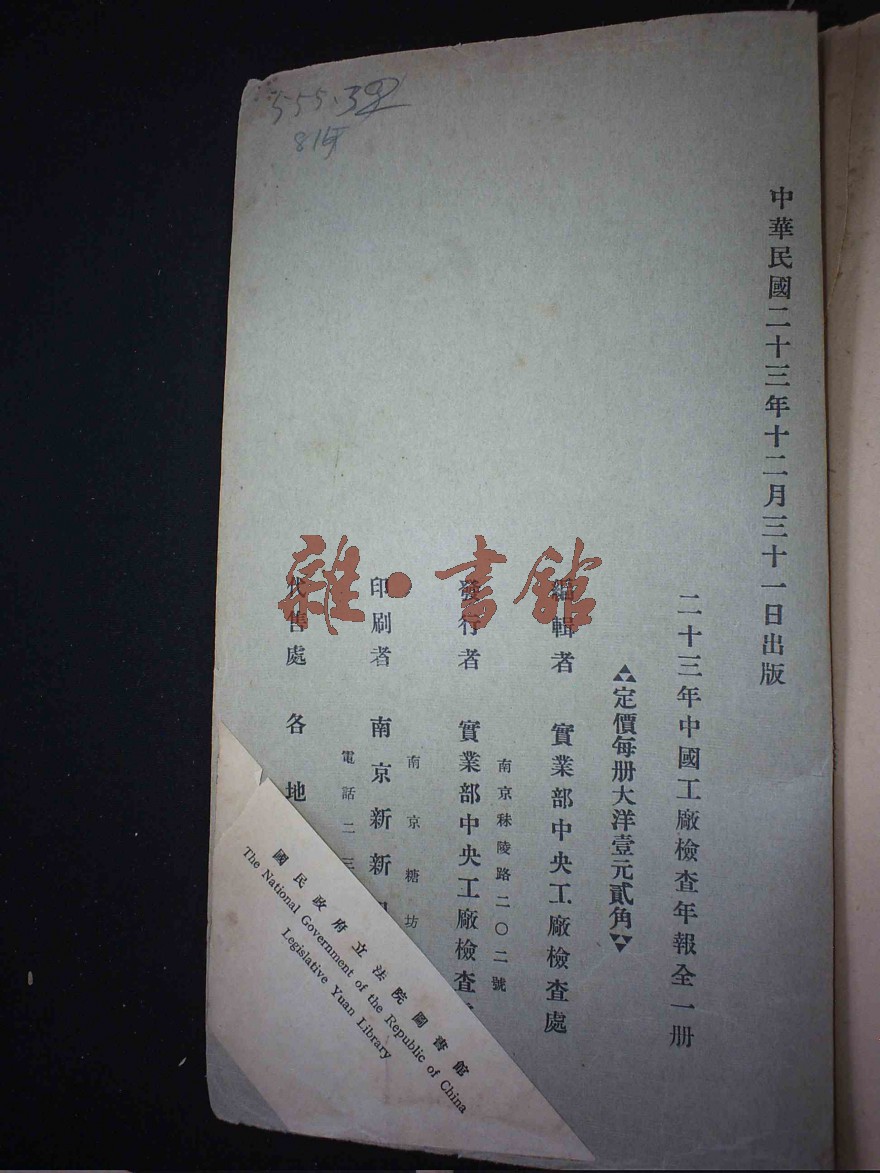 555.3
中華民國二十三年十二月三十一日出版
二十三年中國工廠檢查年報全一册
定價每册大洋壹元貳角
編輯者 實業部中央工廠檢查處
南京秣陵路二〇二號
發行者 實業部中央工廠檢查
南京糖坊
印刷者 南京新新
電話二三
代售處 各地
雜·書館
國民政府立法院圖書館
The National Government of the Republic of China
Legislative Yuan Library